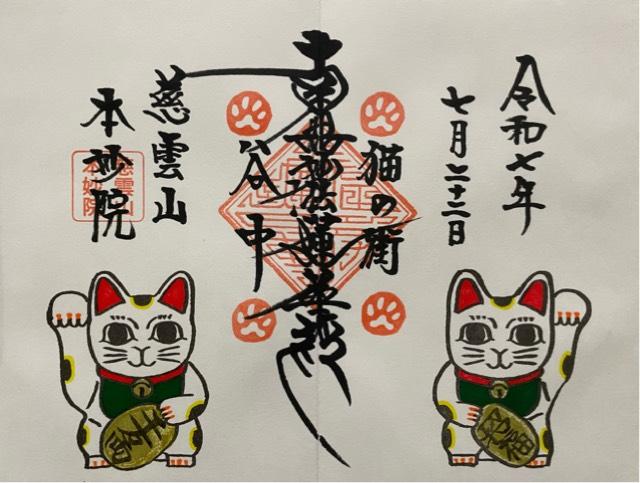 令和七年
七月二十二日
猫の街
南無妙法蓮華経
谷中
慈雲山
本妙院
慈雲山
本妙院